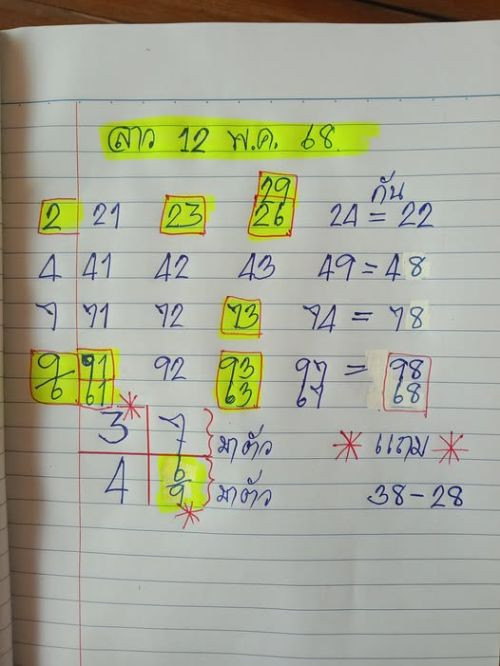 ลาว 12 พ.ค. 68
29 กัน
2 21 23 26 24 = 22
4 41 42 43 49 = 48
7 71 72 73 74 = 78
9 91 92 93 97 = 98
6 61 63 67 68
3 7 } มาตัว * แถม *
4 6 } มาตัว 38 - 28
9